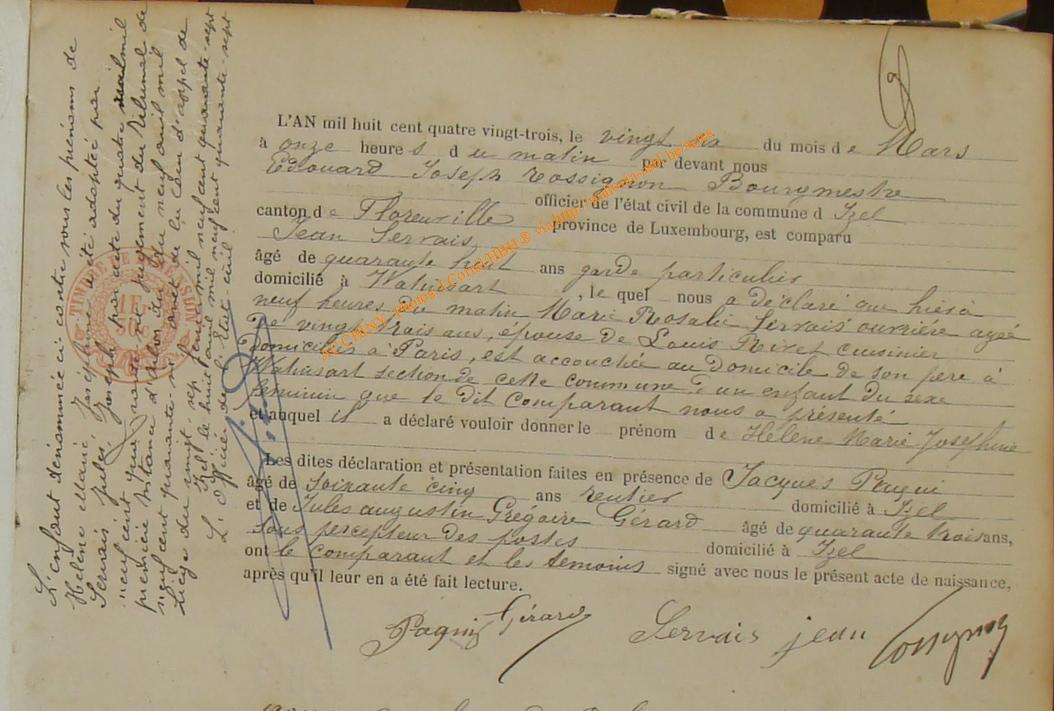 L'AN mil huit cent quatre vingt-trois, le vingt six du mois de Mars
à onze heures du matin par devant nous
Edouard Joseph Rossignon Bourgmestre
officier de l'état civil de la commune d Izel
canton de Florenville province de Luxembourg, est comparu
Jean Servais
âgé de quarante huit ans garde particulier
domicilié à Watrisart, lequel nous a déclaré que hier à
neuf heures du matin Marie Rosalie Servais ouvrière agée
de vingt trois ans, épouse de Louis cuisinier
domicilié à Paris, est accouchée au domicile de son père à
Watrisart section de cette commune d'un enfant du sexe
féminin que le dit comparant nous a présenté
et auquel il a déclaré vouloir donner le prénom de Hélène Marie Joséphine
Les dites déclaration et présentation faites en présence de Jacques Paquis
âgé de soixante cinq ans rentier domicilié à Izel
et de Jules augustin Grégoire Gérard âgé de quarante trois ans,
sous percepteur des postes domicilié à Izel
ont le comparant et les temoins signé avec nous le présent acte de naissance,
après qu'il leur en a été fait lecture.
Gérard
Servais jean
Rossignon
L'enfant dénommée ci contre sous les prénoms de
Hélène Marie Joséphine a été adoptée par
Servais Jules Joseph par acte du quatre mil
neuf cent quarante
première instance d'Arlon du neuf avril mil
neuf cent quarante et arrêt de la Cour d'appel de
Liège du vingt sept février mil neuf cent quarante-sept
Izel le huit mars mil neuf cent quarante sept
L'Officier de l'Etat civil